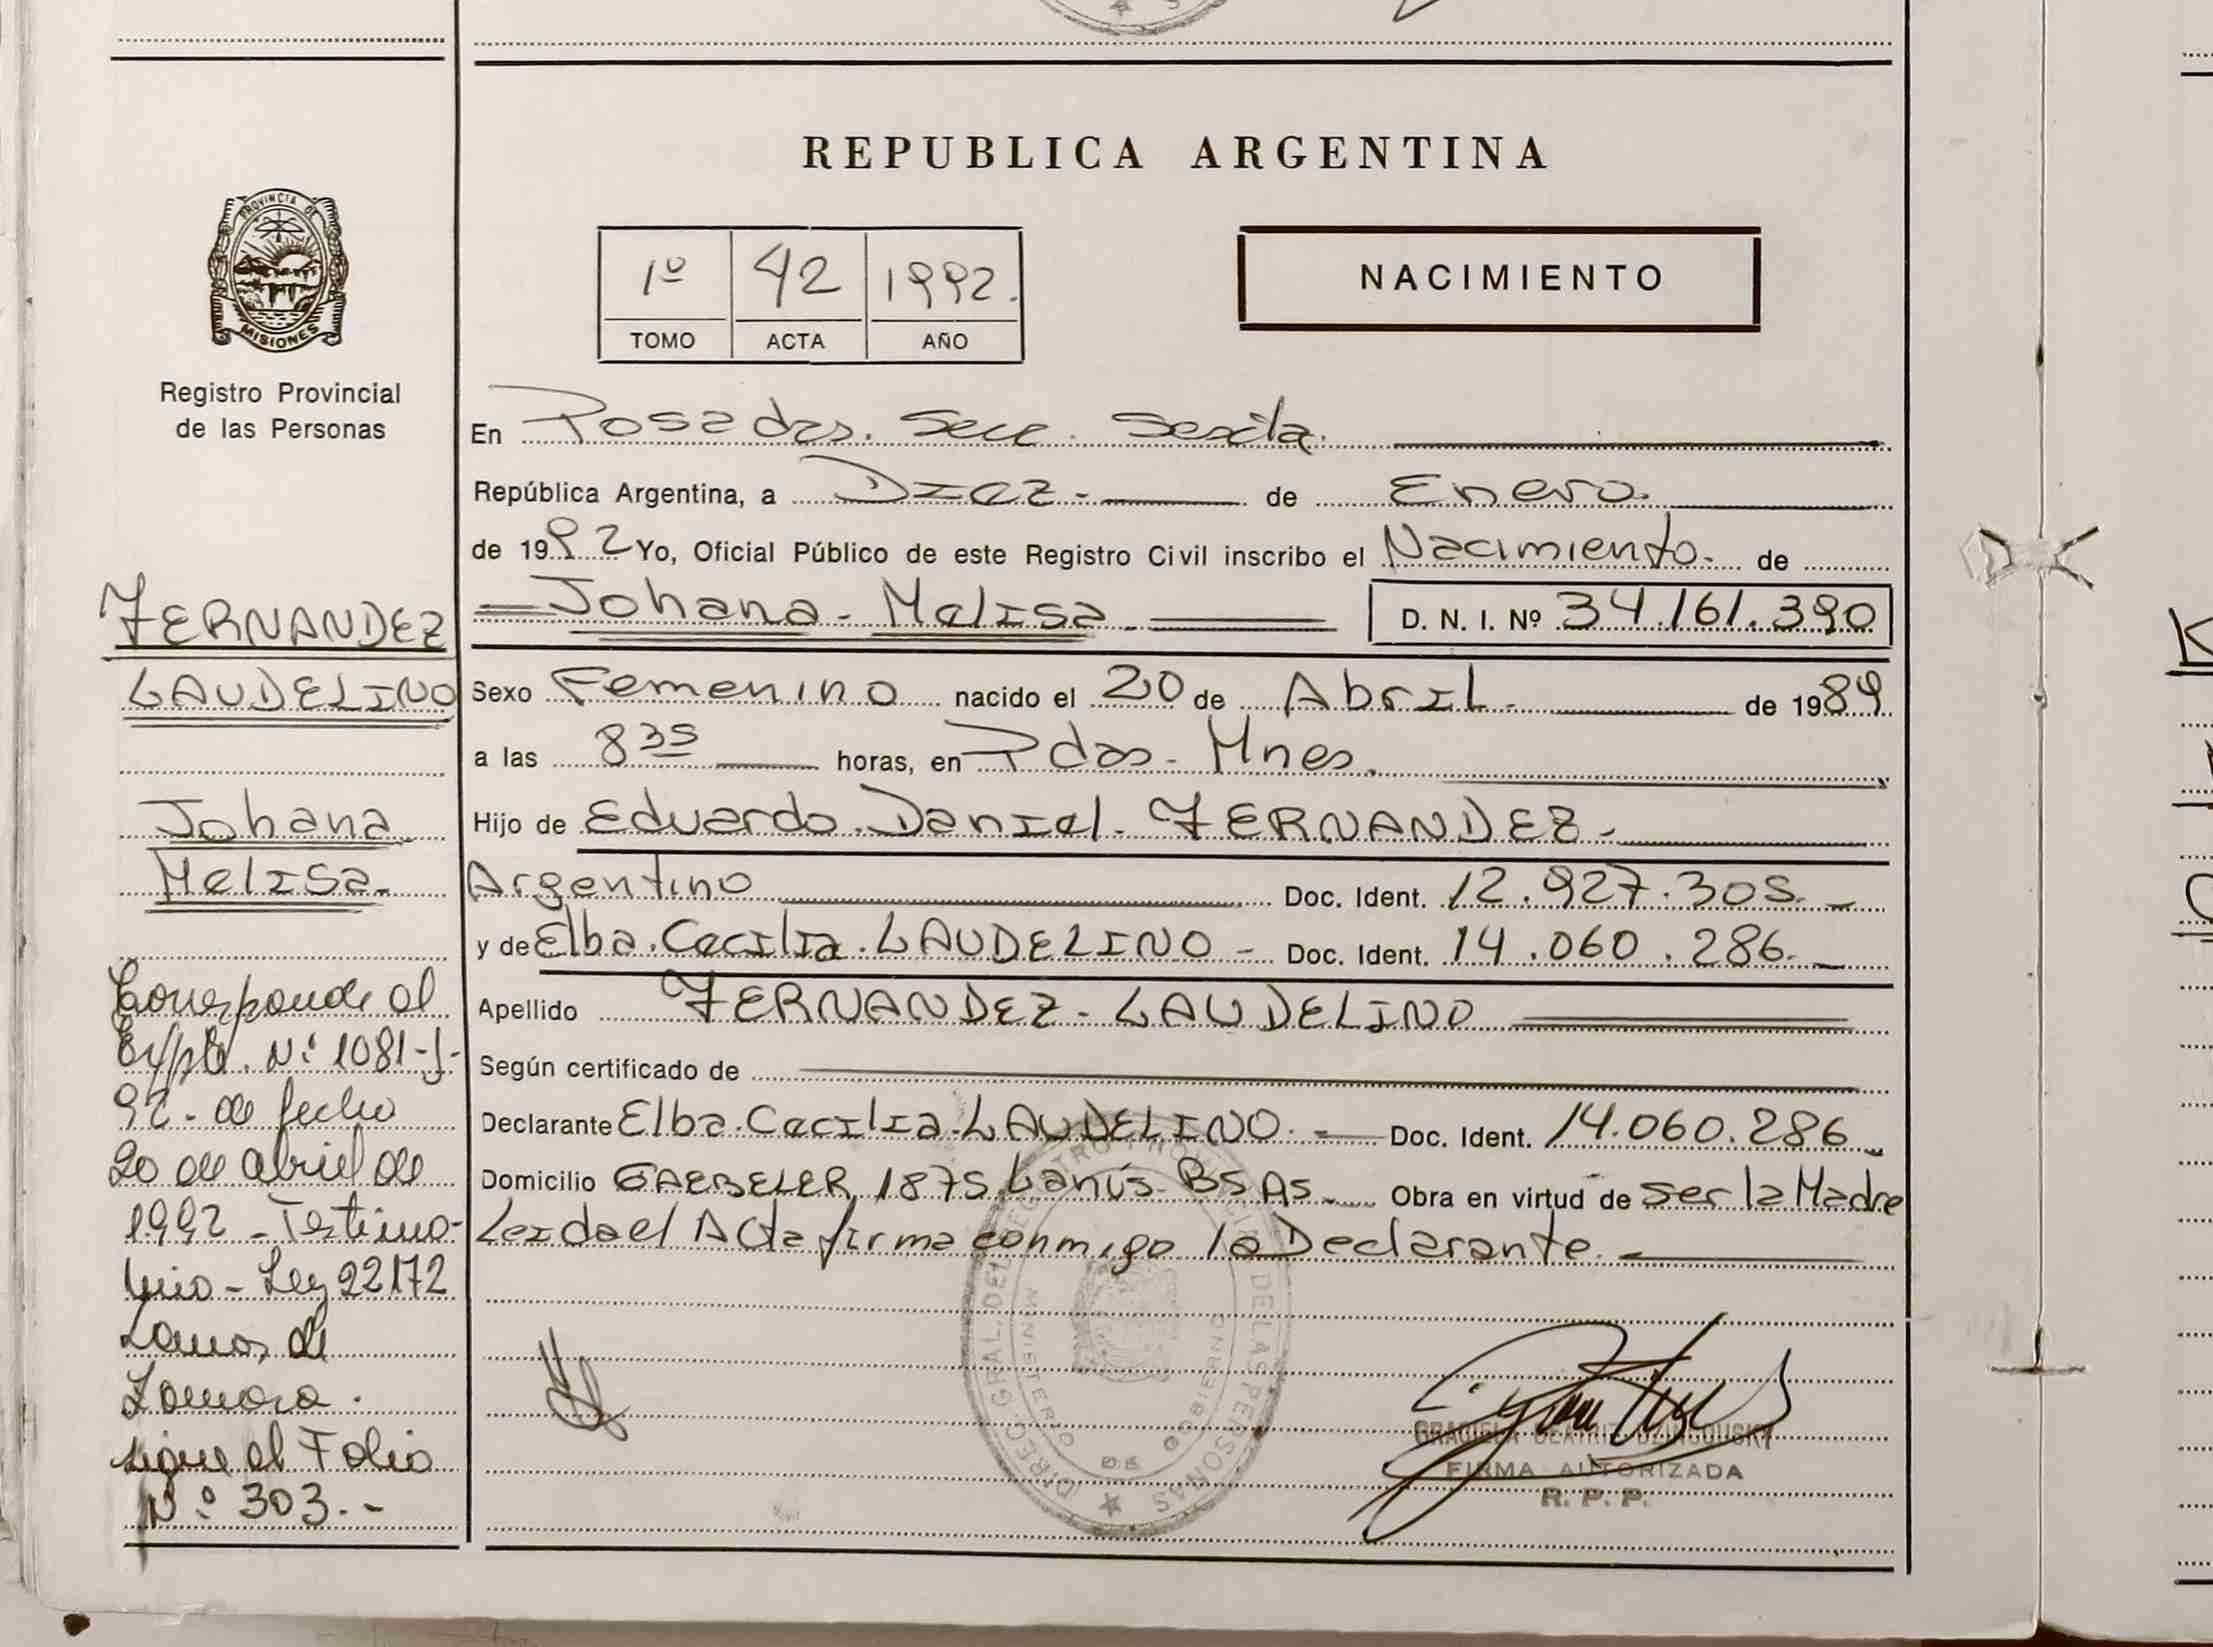 REPUBLICA ARGENTINA
PROVINCIA DE
MISIONES
Registro Provincial
de las Personas
1º 42 1992.
TOMO ACTA AÑO
NACIMIENTO
En Posadas. Secc. Sexta.
República Argentina, a Diez.- de Enero.
de 1992 Yo, Oficial Público de este Registro Civil inscribo el Nacimiento. de
Johana - Melisa. D. N. I. Nº 34.161.390
Sexo Femenino nacido el 20 de Abril. de 1989
a las 8 35 horas, en Pdas - Mnes.
Hijo de Eduardo. Daniel. FERNANDEZ.
Argentino Doc. Ident. 12.927.305.
y de Elba. Cecilia. LAUDELINO - Doc. Ident. 14.060.286.
Apellido FERNANDEZ - LAUDELINO
Según certificado de
Declarante Elba. Cecilia. LAUDELINO. Doc. Ident. 14.060.286
Domicilio 1875 Lanús BS AS. Obra en virtud de ser la Madre
Leida el Acta firma conmigo la Declarante.
DIREC. GRAL. DEL REGISTRO PROVINCIAL DE LAS PERSONAS
MINISTERIO DE GOBIERNO
FIRMA AUTORIZADA
R. P. P.
FERNANDEZ
LAUDELINO
Johana
Melisa.
Corresponde al
Expte. Nº 1081-J-
92 - de fecha
20 de abril de
1992 - Testimo-
nio - Ley 22172
Lomas de
Zamora.
sigue al Folio
Nº 303.-